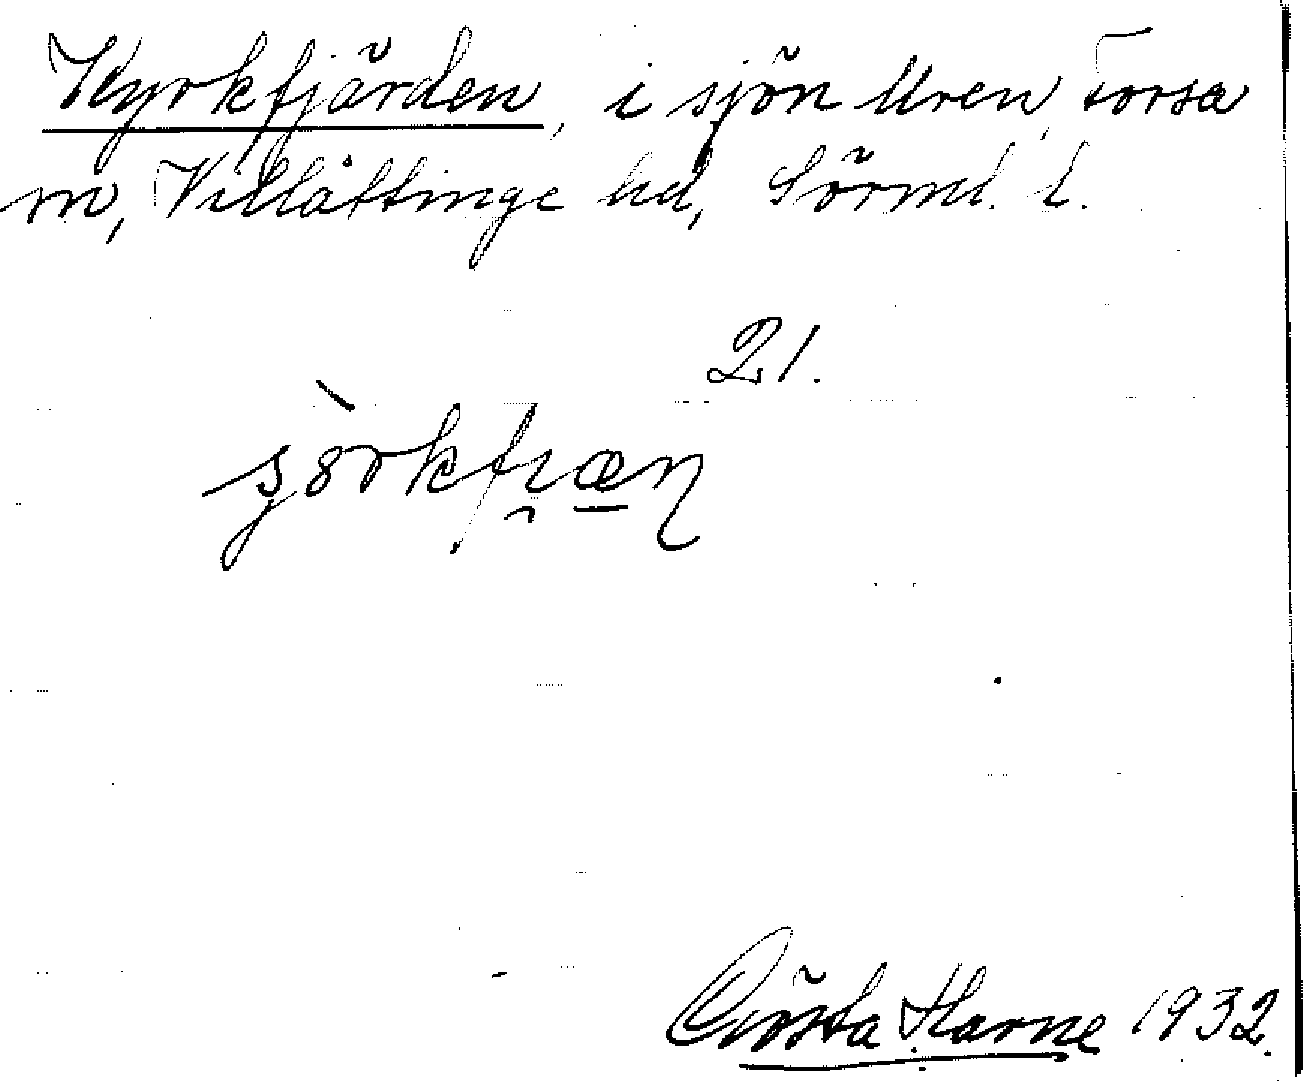 Kyrkfjärden, i sjön Uren, Torsa
sn, Villåttinge hd, Sörml. l.
21.
Gösta Harne 1932.